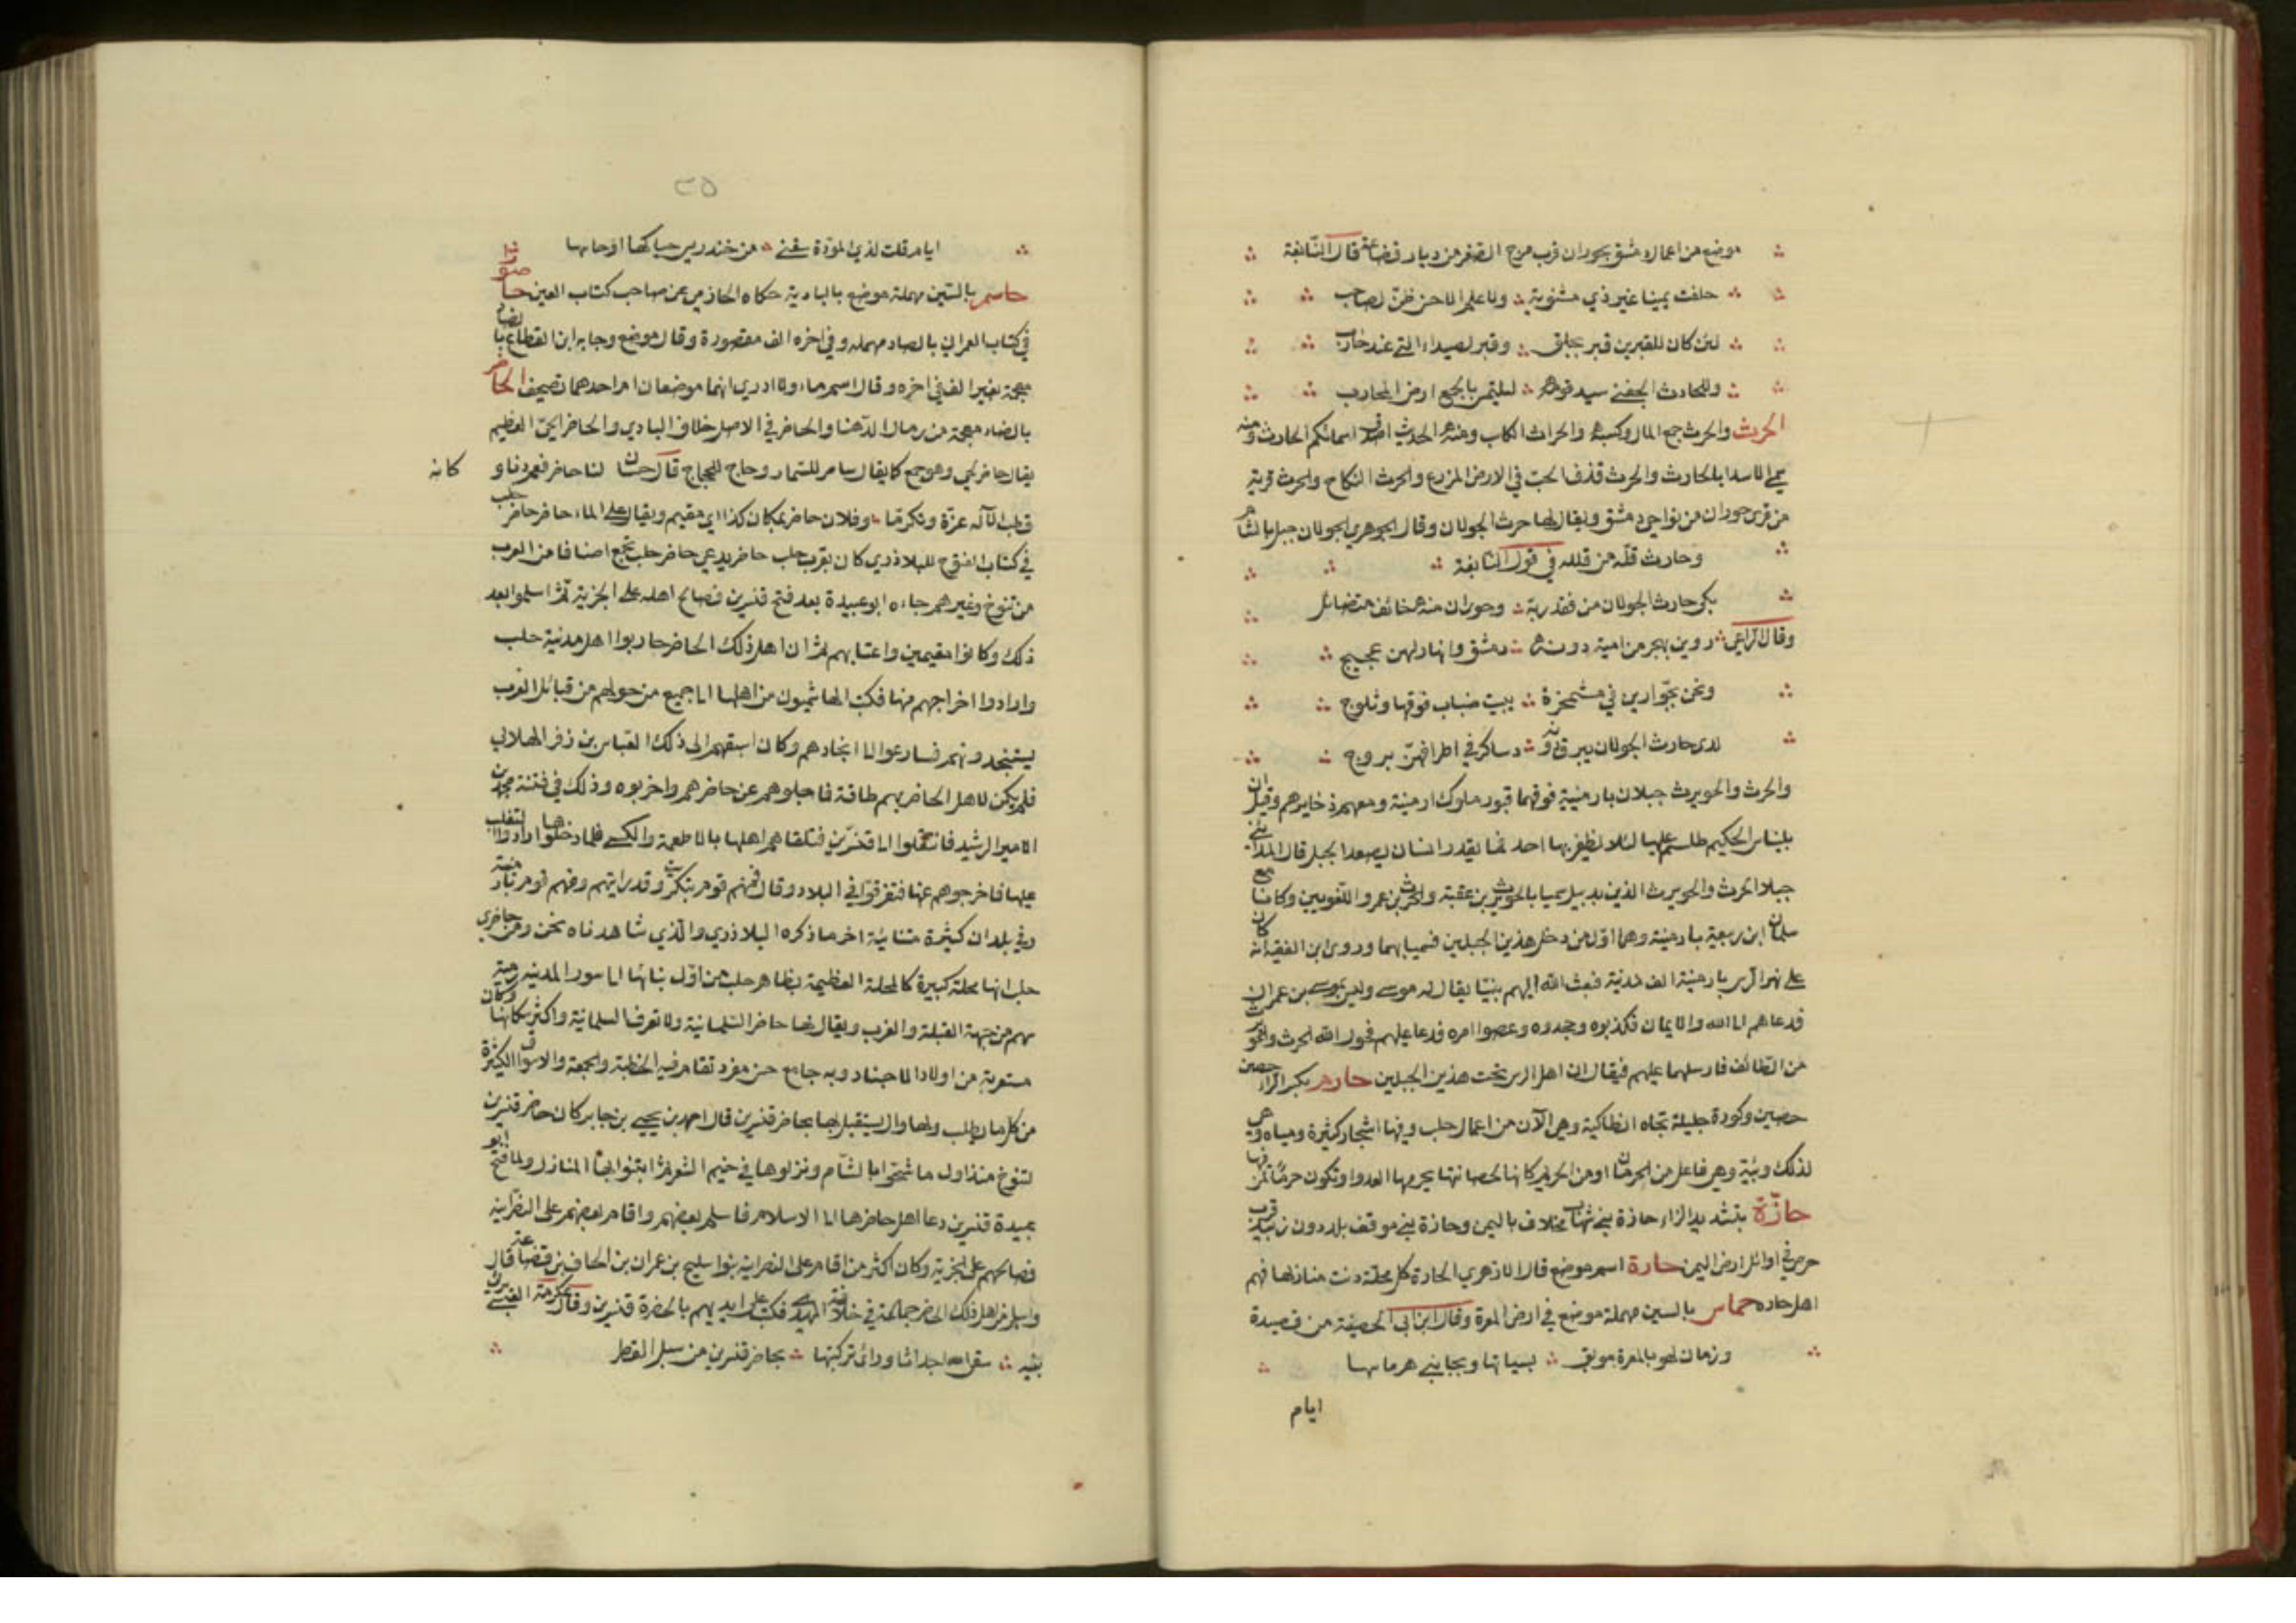 موضع من اعمال دمشق بحوران قرب مرج الصفر من ديار قضاعة قال النابغة
حلفت يمينا غير ذي مثنوية ولا علم الا حسن ظن لصاحب
لئن كان للقبرين قبر بجلق وقبر لصيداء التي عند حارب
وللحارث الجفني سيد قومه ليلتمس بالجمع ارض المحارب
الحرث والحرث جمع المال وكسبه والحراث الكاسب ومنه الحديث اصدق اسمائكم الحارث ومنه
سمي الاسد ابا الحارث والحرث قذف الحب في الارض المزرع والحرث النكاح والحرث قرية
من قرى حوران من نواحي دمشق ويقال لها حرث الجولان وقال الجوهري الجولان جبل بالشام
وحارث قلة من قلله في قول النابغة
بكى حارث الجولان من فقد ربه وحوران منه خائف متضائل
وقال الراعي روين ببحر من امية دونه دمشق وانهار لهن عجيج
ونحن بحوارين في مشمخرة يبيت ضباب فوقها وثلوج
لدى حارث الجولان يبرق دونه دساكر في اطرافهن بروج
والحرث والحويرث جبلان بارمينية فوقهما قبور ملوك ارمينة ومعهم ذخايرهم وقيل ان
بليناس الحكيم طلسم عليها لئلا يظفر بها احد فما يقدر انسان يصعد الجبل قال المدائني
جبلا الحرث والحويرث الذين بدبيل سميا بالحويرث بن عقبة والحرث بن عمرو الغنويين وكانا مع
سلمان ابن ربيعة بارمينة وهما اول من دخل هذين الجبلين فسميا بهما وروى ابن الفقيه انه كان
على نهر الرس بارمينة الف مدينة فبعث الله اليهم نبيا يقال له موسى وليس بموسى بن عمران
فدعاهم الى الله والايمان فكذبوه وجحدوه وعصوا امره فدعا عليهم فحول الله الحرث والحويرث
من الطائف فارسلهما عليهم فيقال ان اهل الرس تحت هذين الجبلين حارم بكسر الراء حصن
حصين وكورة جليلة تجاه انطاكية وهي الآن من اعمال حلب وفيها اشجار كثيرة ومياه وهي
لذلك وبئة وهي فاعل من الحرمان او من الحريم كانها لحصانتها يحرمها العدو او تكون حرما لمن فيها
حازة بتشديد الزاء حازة بني شهاب مخلاف باليمن وحازة بني موفق بلد دون زبيد قرب
حرض في اوائل ارض اليمن حارة اسم موضع قال الازهري الحارة كل محلة دنت منازلها فهم
اهل حاره حماس بالسين مهملة موضع في ارض المعرة وقال ابن ابي الحصينة من قصيدة
وزمان لهو بالمعرة مونق بسياتها وبجانبي هرماسها
ايام
٢٥
ايام قلت لذي المودة سقني من خندريس حناكها او حاسها
حاسم بالسين مهملة موضع بالبادية حكاه الحازمي عن صاحب كتاب العين حاصورا
في كتاب العمراني بالصاد مهمله وفي اخره الف مقصورة وقال موضع وجا به ابن القطاع بالضاد
معجمة بغير الف في اخره وقال اسم ماء ولا ادري انهما موضعان ام احدهما تصحيف الحاضر
بالضاد معجمة من رمال الدهنا والحاضر في الاصل خلاف البادي والحاضر الحي العظيم
يقال حاضر طي وهو جمع كما يقال سامر للسمار وحاج للحجاج قال حسان لنا حاضر فعم وناو كانه
قطب الآله عزة وتكرما وفلان حاضر بمكان كذا اي مقيم ويقال على الماء حاضر حاضر حلب
في كتاب الفتوح للبلاذري كان بقرب حلب حاضر يدعى حاضر حلب تجمع اصنافا من العرب
من تنوخ وغيرهم جاءه ابو عبيدة بعد فتح قنسرين فصالح اهله على الجزية ثم اسلموا بعد
ذلك وكانوا مقيمين واعقابهم ثم ان اهل ذلك الحاضر حاربوا اهل مدنية حلب
وارادوا اخراجهم منها فكتب الهاشميون من اهلها الى جميع من حولهم من قبائل العرب
يستنجدونهم فسارعوا الى انجادهم وكان اسبقهم الى ذلك العباس بن زفر الهلالي
فلم يكن لاهل الحاضر بهم طاقة فاجلوهم عن حاضرهم واخربوه وذلك في فتنة محمد بن
الامير الرشيد فانتقلوا الى قنسرين فتلقاهم اهلها بالاطعمة والكسى فلما دخلوها ارادوا التغلب
عليها فاخرجوهم عنها فتفرقوا في البلاد وقال فمنهم قوم بتكريت وقد رايتهم ومنهم قوم بارمينية
وفي بلدان كثيرة متنائية اخر ما ذكره البلاذري والذي شاهدناه نحن من حاضري
حلب انها محلة كبيرة كالمحلة العظيمة بظاهر حلب بين اول بنائها الى سور المدينه رمية
سهم من جهة القبلة والغرب ويقال لها حاضر السلمانية ولا تعرف السلمانية واكثر سكانها تركمان
مستعربة من اولاد الاجناد وبه جامع حسن مفرد تقام فيه الخطبة والجمعة والاسواق الكثيرة
من كل ما يطلب ولها وال يستقبل بها حاضر قنسرين قال احمد بن يحيى بن جابر كان حاضر قنسرين
لتنوخ منذ اول ما تنخوا بالشام ونزلوها في خيم الشعر ثم ابتنوا بها المنازل ولما فتح ابو
عبيدة قنسرين دعا اهل حاضرها الى الاسلام فاسلم بعضهم واقام بعضهم على النصرانية
فصالحهم على الجزية وكان اكثر من اقام على النصرانية بنوا سليح بن عمران بن الحاف بن قضاعة قال
واسلم من اهل ذلك الحاضر جماعة في خلافة المهدي فكتب على ايديهم بالخضرة قنسرين وقال عكرمة العبسي يرثي
بنيه سقى الله اجداثا ورائي تركتها بحاضر قنسرين من سبل القطر